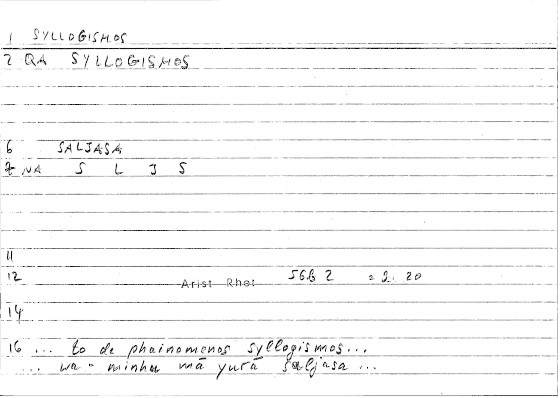 1 SYLLOGISMOS
2 QA SYLLOGISMOS
6 SALJASA
7 NA S L J S
11
12 Arist Rhet 56b 2 = 2. 20
14
16 ... to de phainomenos syllogismos...
... wa - minhu mā yurā saljasa ...